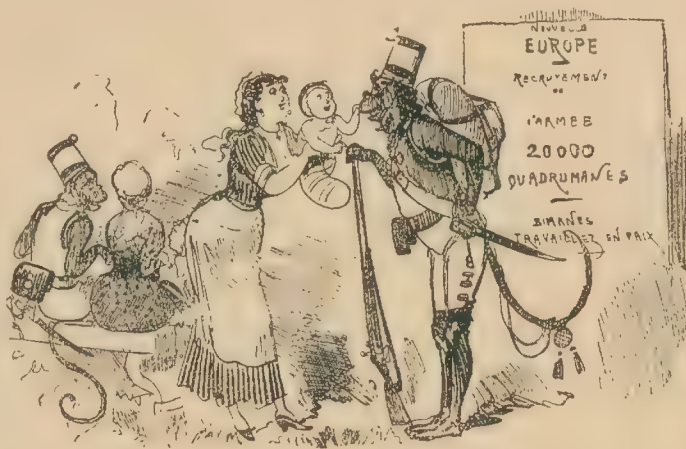 NOUVELLE
EUROPE
RECRUTEMENT
DE
L'ARMEE
20000
QUADRUMANES
BIMANES
TRAVAILLEZ EN PAIX